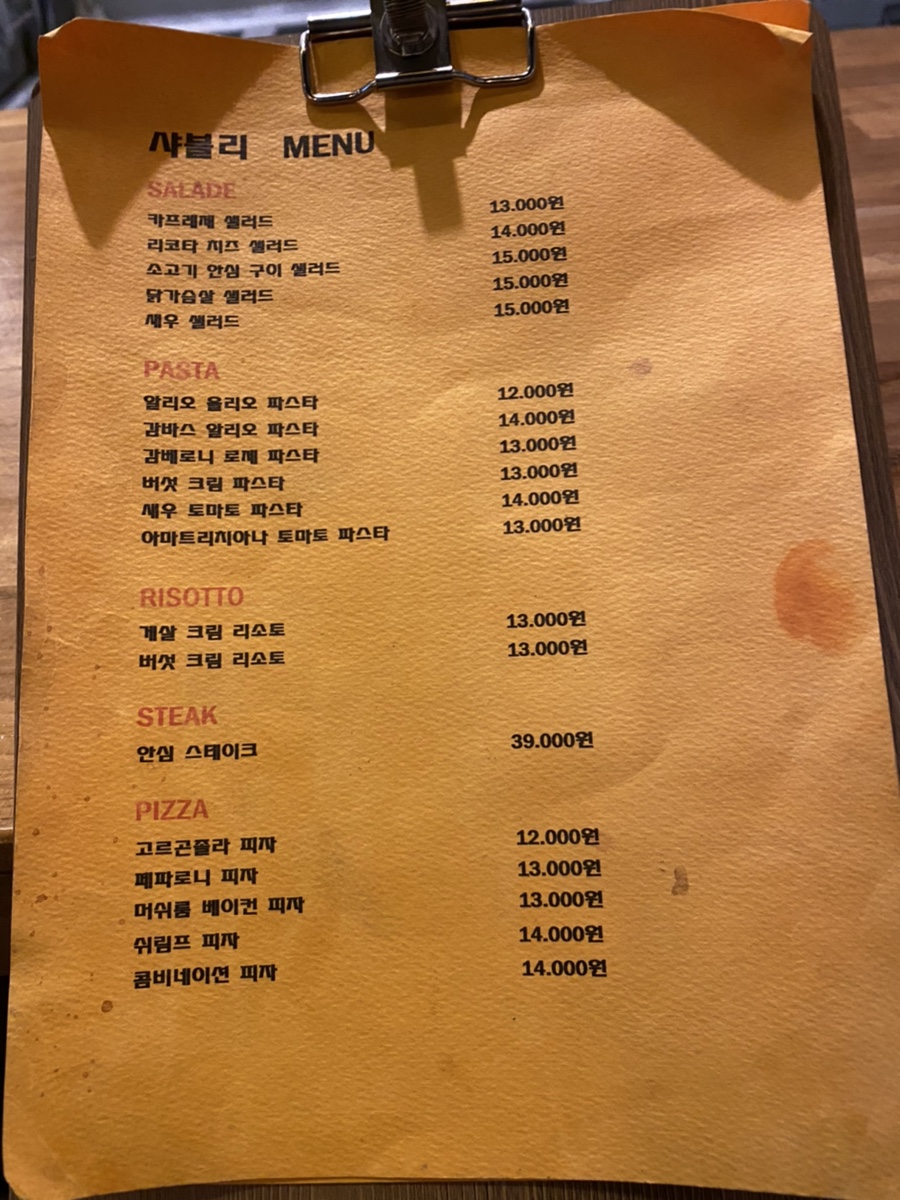 샤블리 MENU
SALADE
카프레제 샐러드 13.000원
리코타 치즈 샐러드 14.000원
소고기 안심 구이 샐러드 15.000원
닭가슴살 샐러드 15.000원
새우 샐러드 15.000원
PASTA
알리오 올리오 파스타 12.000원
감바스 알리오 파스타 14.000원
감베로니 로제 파스타 13.000원
버섯 크림 파스타 13.000원
새우 토마토 파스타 14.000원
아마트리치아나 토마토 파스타 13.000원
RISOTTO
게살 크림 리소토 13.000원
버섯 크림 리소토 13.000원
STEAK
안심 스테이크 39.000원
PIZZA
고르곤졸라 피자 12.000원
페파로니 피자 13.000원
머쉬룸 베이컨 피자 13.000원
쉬림프 피자 14.000원
콤비네이션 피자 14.000원